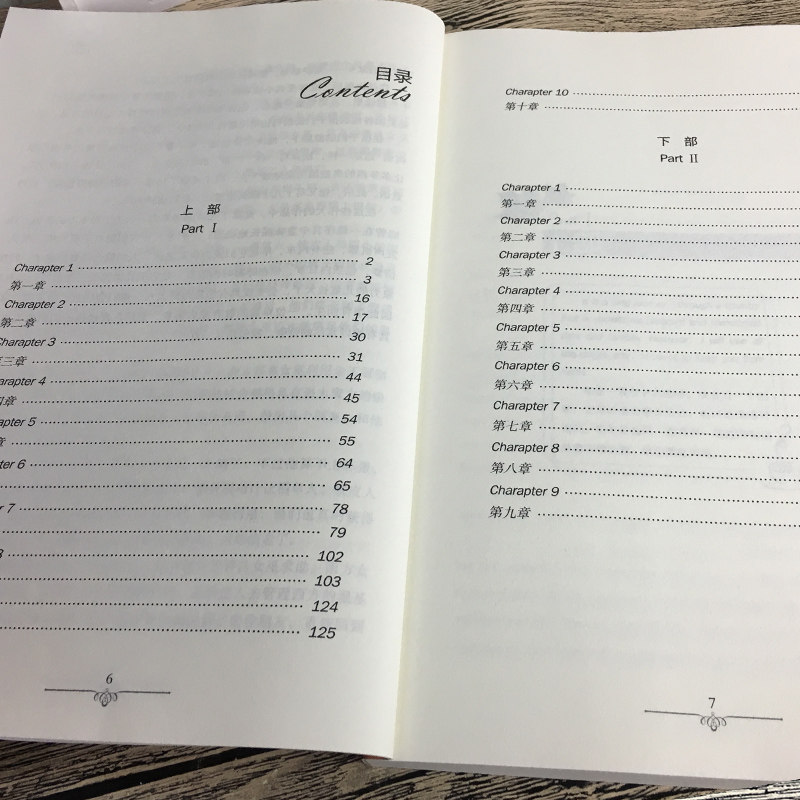 目录
Contents
上 部
Part Ⅰ
Charapter 1 2
第一章 3
Charapter 2 16
第二章 17
Charapter 3 30
三章 31
arapter 4 44
章 45
apter 5 54
章 55
ter 6 64
65
r 7 78
79
8 102
103
124
125
6
Charapter 10
第十章
下 部
Part Ⅱ
Charapter 1
第一章
Charapter 2
第二章
Charapter 3
第三章
Charapter 4
第四章
Charapter 5
第五章
Charapter 6
第六章
Charapter 7
第七章
Charapter 8
第八章
Charapter 9
第九章
7